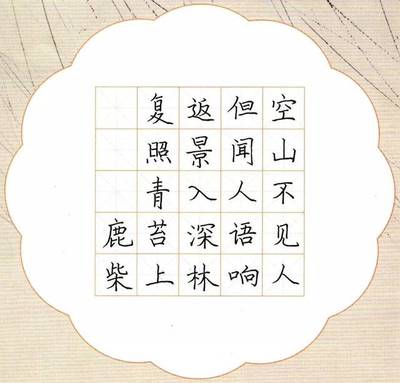 空山不见人
但闻人语响
返景入深林
复照青苔上
鹿柴